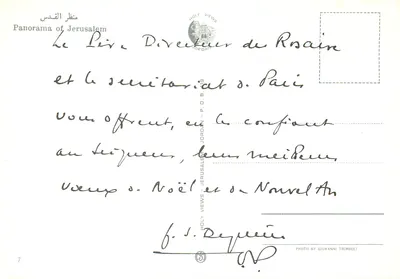 منظر القدس
Panorama of Jerusalem
Le Père Directeur du Rosaire
et le secrétariat de Paris
vous offrent, en les confiant
au Seigneur, leurs meilleurs
vœux de Noël et de Nouvel An
f. J.
HOLY VIEWS JERUSALEM JORDAN P.O.B.
PHOTO BY GIOVANNI TRIMBOLI
7